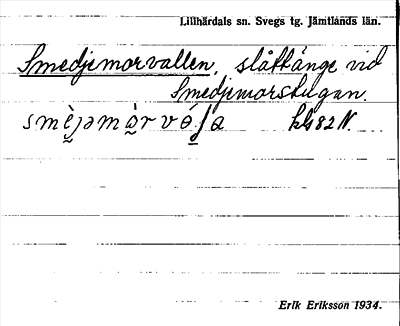 Lillhärdals sn. Svegs tg. Jämtlands län.
Smedjemorvallen, slåttänge vid
Smedjemorstugan.
Erik Eriksson 1934.